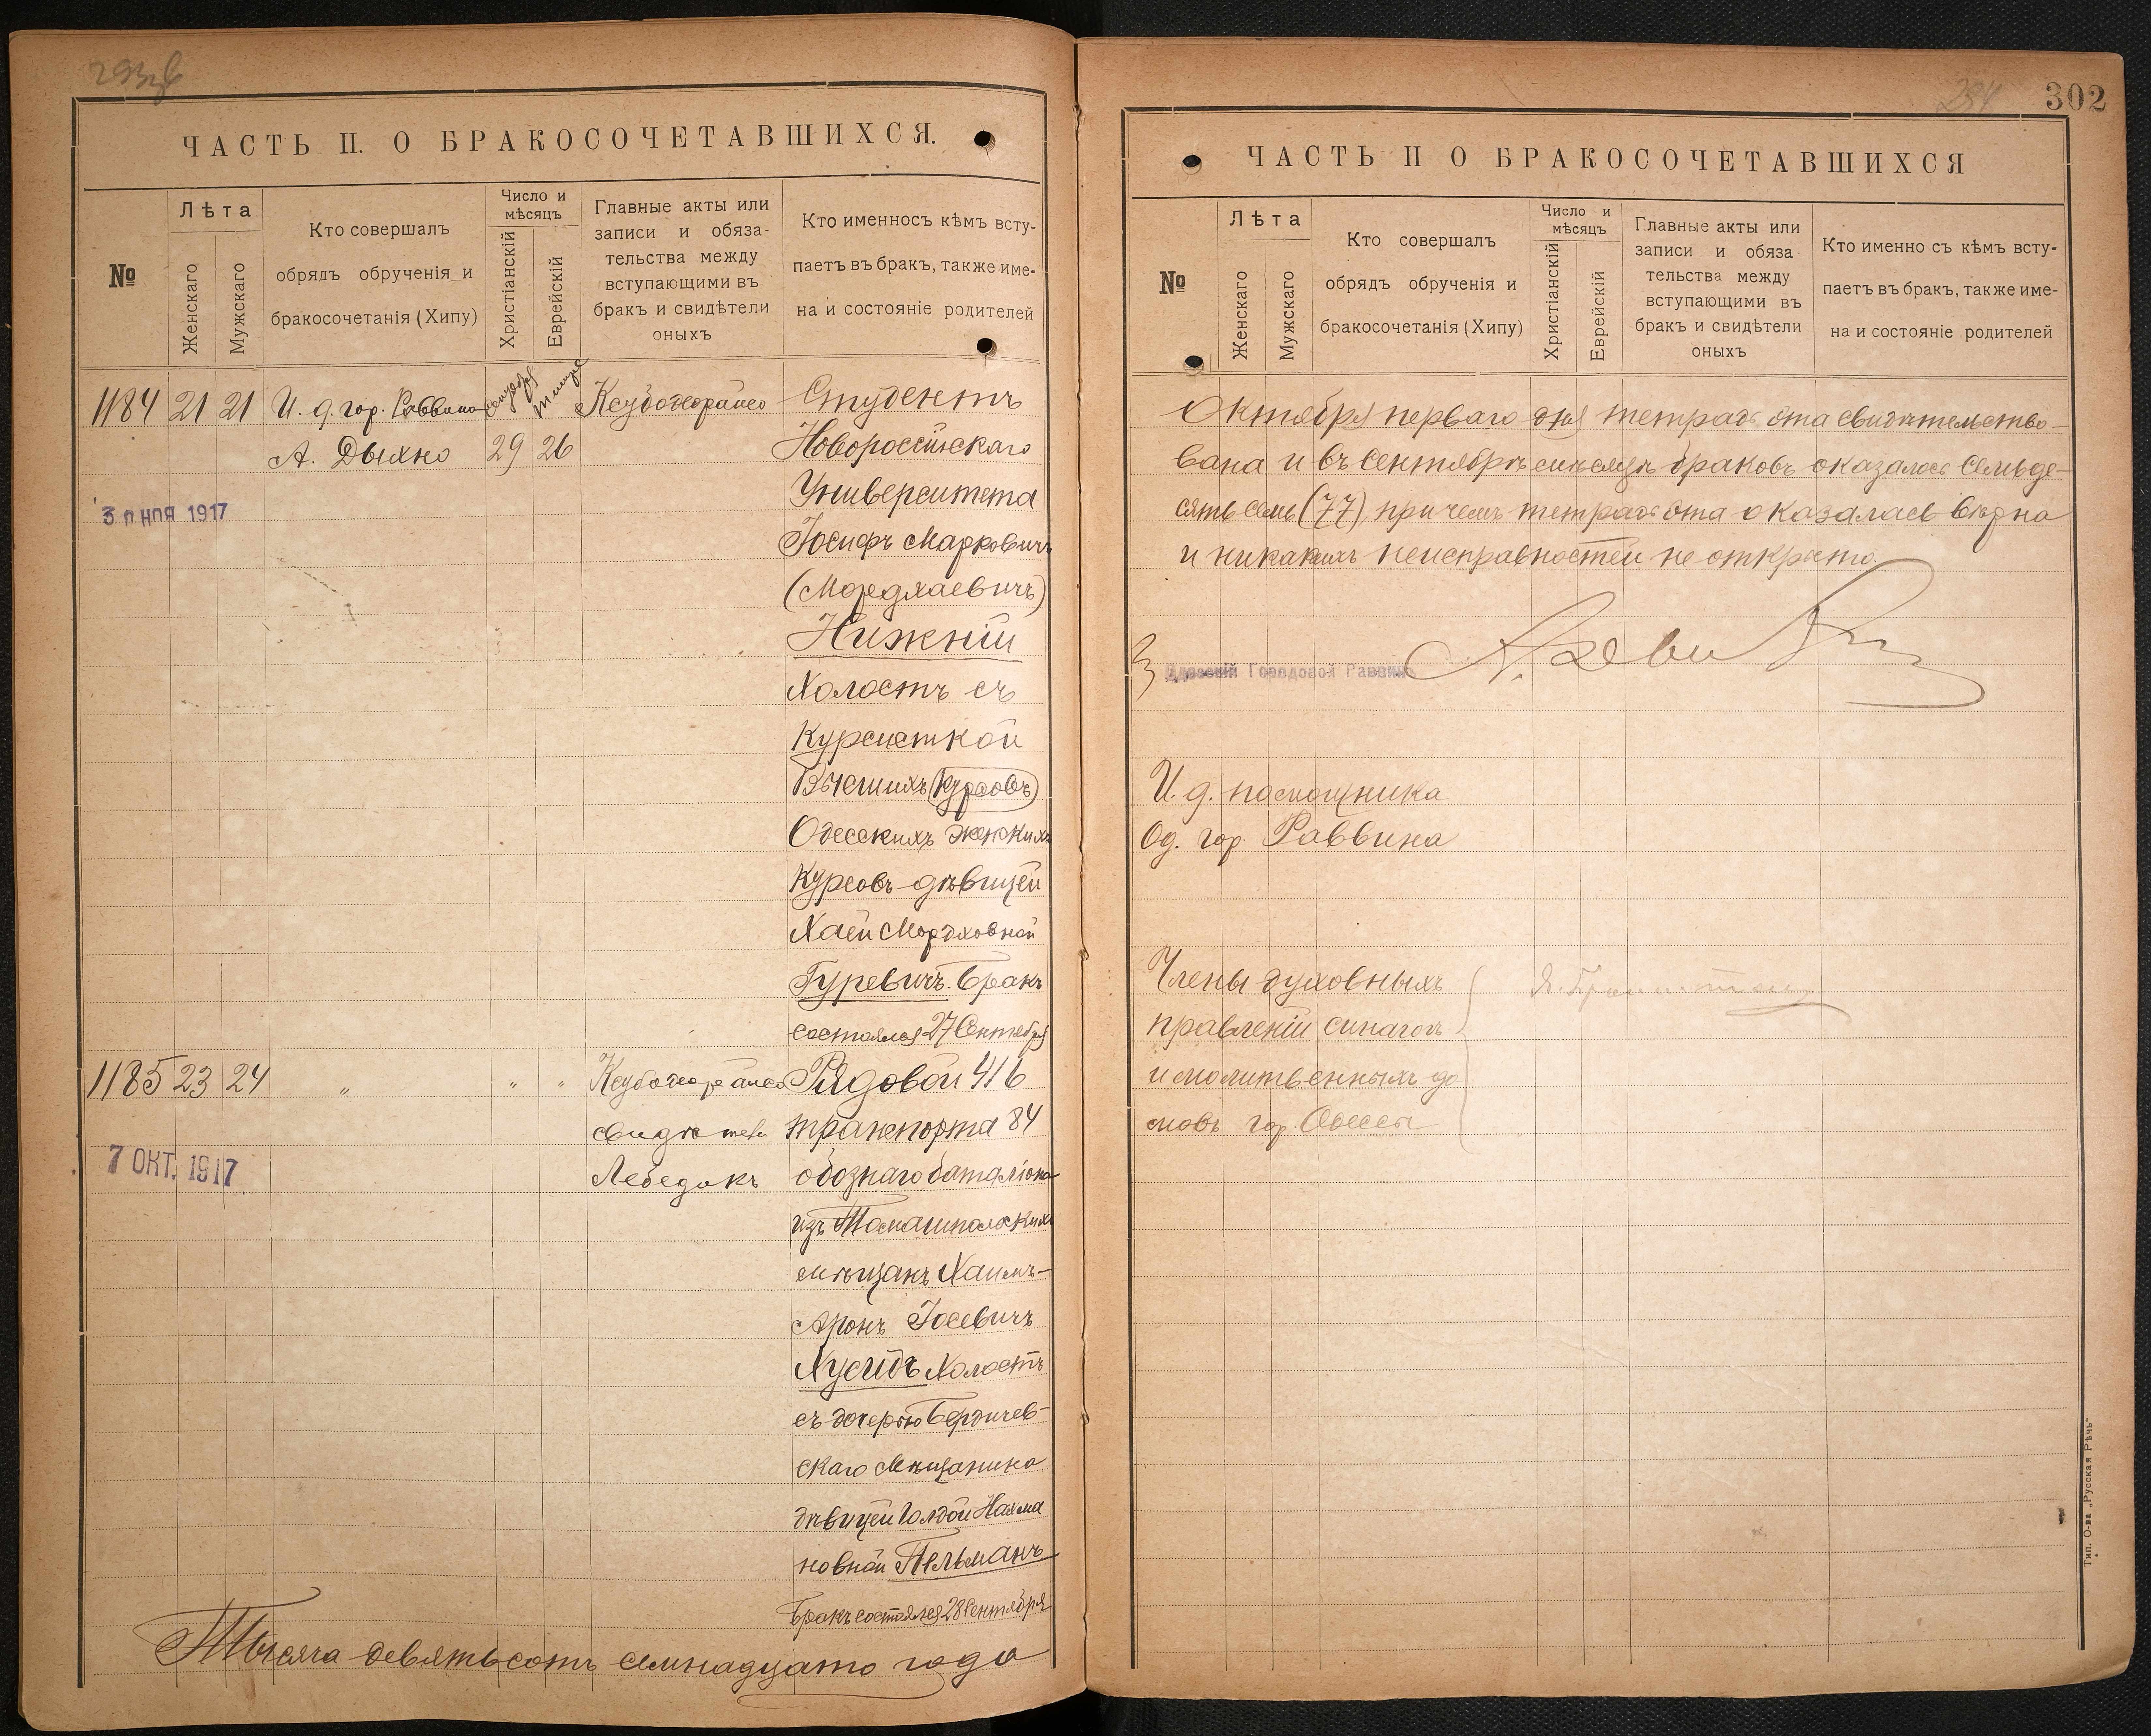 ЧАСТЬ II. О БРАКОСОЧЕТАВШИХСЯ.
№
Лѣта
Женскаго
Мужскаго
Кто совершалъ
обрядъ обрученія и
бракосочетанія (Хипу)
Число и
мѣсяцъ
Христіанскій
Еврейскій
Главные акты или
записи и обяза-
тельства между
вступающими въ
бракъ и свидѣтели
оныхъ
Кто именносъ кѣмъ всту-
паетъ въ бракъ, также име-
на и состояніе родителей
1184 21 21 И. д. гор. Раввина Студентъ
А. Дыхно 29 26 Новороссійскаго
Университета
1917
Іосифъ Марковичъ
(Мордхаевичъ)
Нижній
Холостъ съ
Курсисткой
Высшихъ (Курсовъ)
Одесскихъ женскихъ
Курсовъ дѣвицей
Хаей Мордховной
Гуревичъ. Бракъ
состоялся 27 Сентября
1185 23 24 " " " Рядовой 416
транспорта 84
7 ОКТ. 1917
обознаго баталіона
изъ Томашпольскихъ
мѣщанъ Хаимъ-
Аронъ Іосевичъ
Хусидъ Холостъ
съ дочерью Бердичев-
скаго Мѣщанина
дѣвицей Голдой Нахма
новной Пельманъ
Бракъ состоялся 28 Сентября
Тысяча девятьсотъ семнадцато года
302
ЧАСТЬ II О БРАКОСОЧЕТАВШИХСЯ
№
Лѣта
Женскаго
Мужскаго
Кто совершалъ
обрядъ обрученія и
бракосочетанія (Хипу)
Число и
мѣсяцъ
Христіанскій
Еврейскій
Главные акты или
записи и обяза
тельства между
вступающими въ
бракъ и свидѣтели
оныхъ
Кто именно съ кѣмъ всту-
паетъ въ бракъ, также име-
на и состояніе родителей
Октября перваго дня тетрадь эта свидѣтельство-
вана и въ Сентябрѣ мѣсяцѣ браковъ оказалось Семьде-
сять семь (77), причемъ тетрадь эта оказалась вѣрна
и никакихъ неисправностей не открыто.
Одесскій Городовой Раввинъ
И. д. помощника
Од. гор. Раввина
Члены духовныхъ
правленій синагогъ
и молитвенныхъ до
мовъ гор. Одессы
Тип. О-ва „Русская Рѣчь"